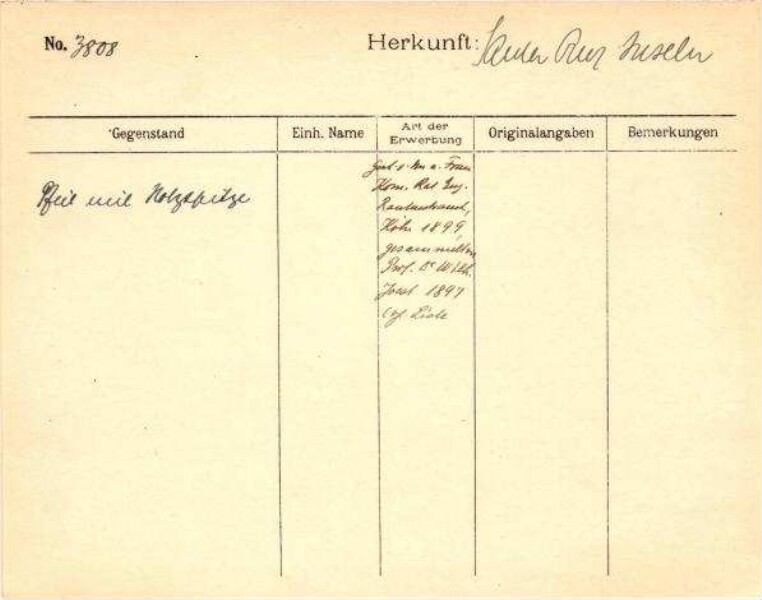 No. 3808
Herkunft: Santa Cruz Inseln
Gegenstand
Einh. Name
Art der Erwerbung
Originalangaben
Bemerkungen
Pfeil mit Holzspitze
Gesch. v. Frau
Kom. Rat Eug.
Rautenstrauch,
Köln 1899,
gesammelt von
Prof. Dr Wilh.
Joest 1897
Liste